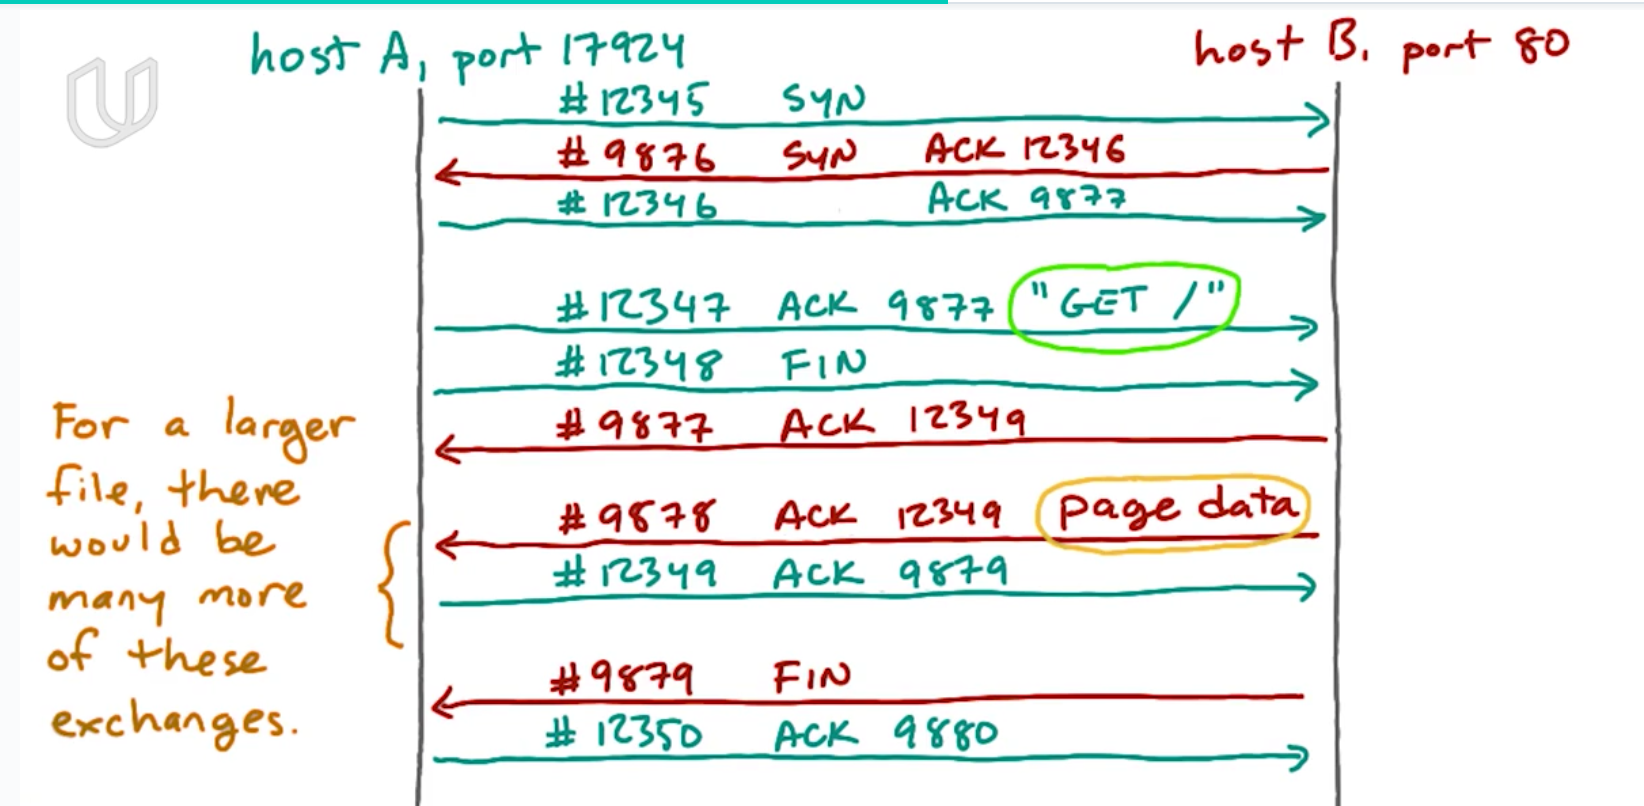 host A, port 17924
host B, port 80
# 12345 SYN
# 9876 SYN ACK 12346
# 12346 ACK 9877
#12347 ACK 9877 "GET /"
#12348 FIN
#9877 ACK 12349
#9878 ACK 12349 page data
#12349 ACK 9879
#9879 FIN
# 12350 ACK 9880
For a larger
file, there
would be
many more
of these
exchanges.